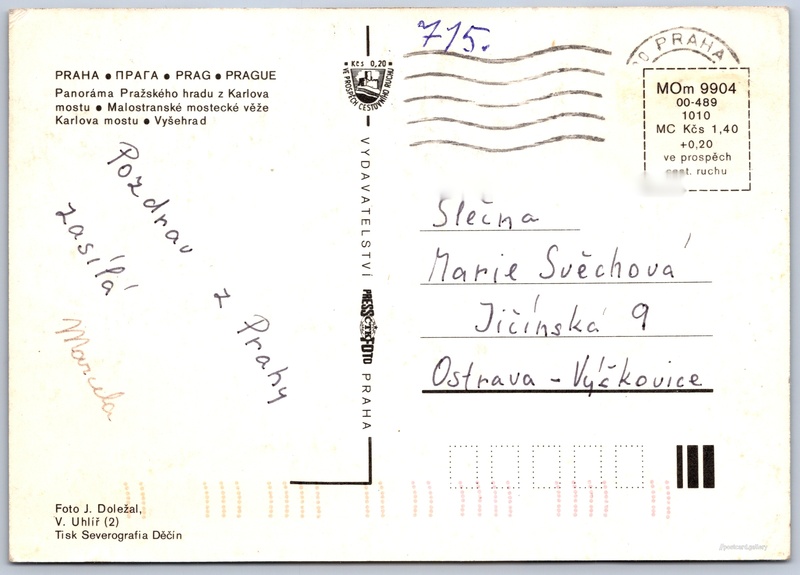 PRAHA ● ПРАГА ● PRAG ● PRAGUE
Panoráma Pražského hradu z Karlova
mostu ● Malostranské mostecké věže
Karlova mostu ● Vyšehrad
Pozdrav z Prahy
zasílá
Marcela
Foto J. Doležal,
V. Uhlíř (2)
Tisk Severografia Děčín
Kčs 0,20
VE PROSPĚCH CESTOVNÍHO RUCHU
VYDAVATELSTVÍ
PRESS
ČTK
FOTO
PRAHA
715.
PRAHA
MOm 9904
00-489
1010
MC Kčs 1,40
+0,20
ve prospěch
cest. ruchu
Slečna
Marie Svěchová
Jičínská 9
Ostrava - Výškovice